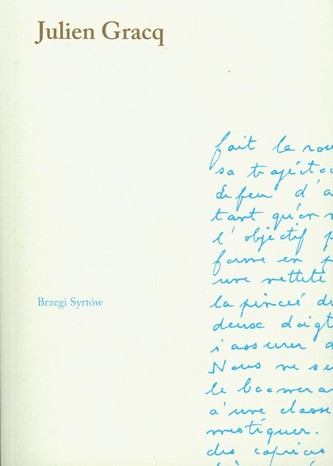 Julien Gracq
fait la rou
sa trajécto
de feu d'a
tant qu'on
l'objectif p
forme en p
une netteté
la pincée d
deux doigts
s'assurer d
Nous ne se
le boomera
à une classe
mestiquer.
des caprices
Brzegi Syrtów